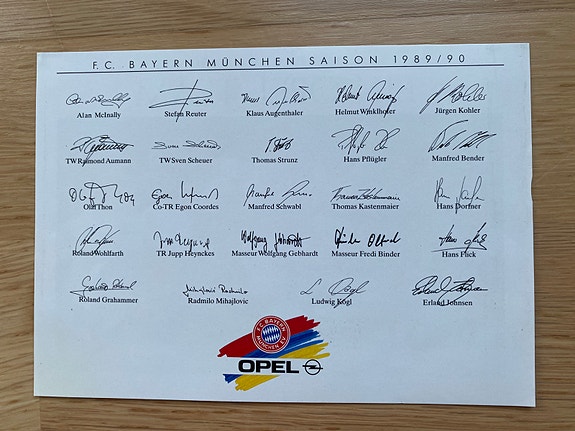 F.C. BAYERN MÜNCHEN SAISON 1989/90
Alan McInally Stefan Reuter Klaus Augenthaler Helmut Winklhofer Jürgen Kohler
TW Raimond Aumann TW Sven Scheuer Thomas Strunz Hans Pflügler Manfred Bender
Olaf Thon Co-TR Egon Coordes Manfred Schwabl Thomas Kastenmaier Hans Dorfner
Roland Wohlfarth TR Jupp Heynckes Masseur Wolfgang Gebhardt Masseur Fredi Binder Hans Flick
Roland Grahammer Radmilo Mihajlovic Ludwig Kögl Erland Johnsen
F.C. BAYERN
MÜNCHEN E.V.
OPEL